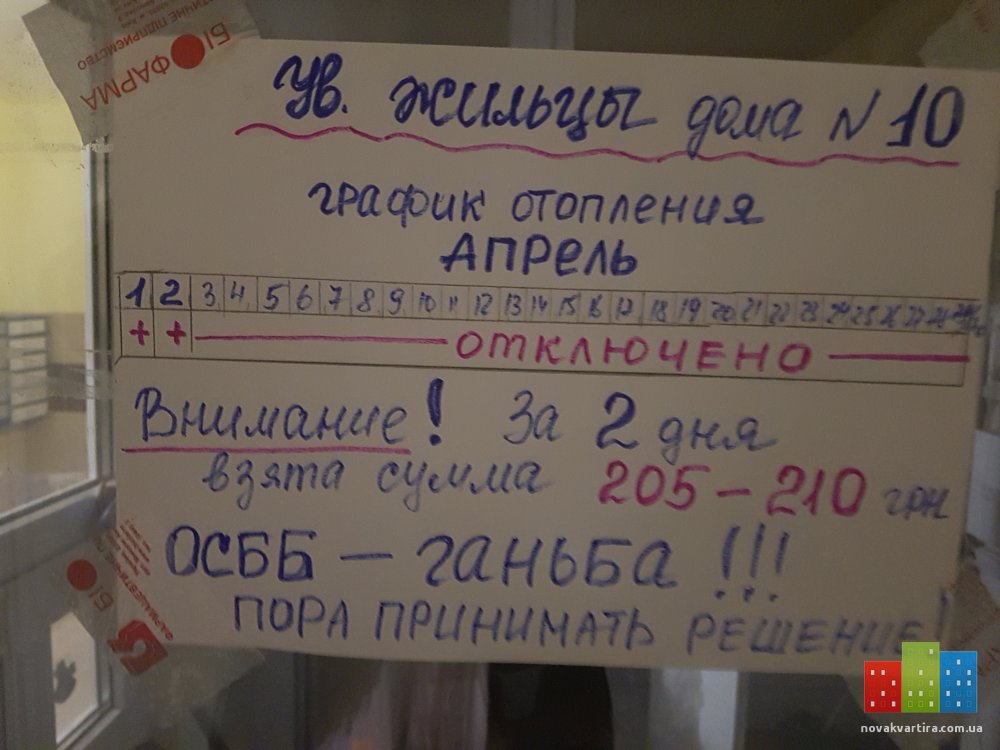 БІОФАРМА
Ув. жильцы дома № 10
график отопления
АПРЕЛЬ
1 2 3 4 5 6 7 8 9 10 11 12 13 14 15 16 17 18 19 20 21 22 23 24 25 26 27 28
+ + ОТКЛЮЧЕНО
Внимание! За 2 дня
взята сумма 205 – 210 грн
ОСББ – ганьба !!!
ПОРА ПРИНИМАТЬ РЕШЕНИЕ!
БІО
novakvartira.com.ua